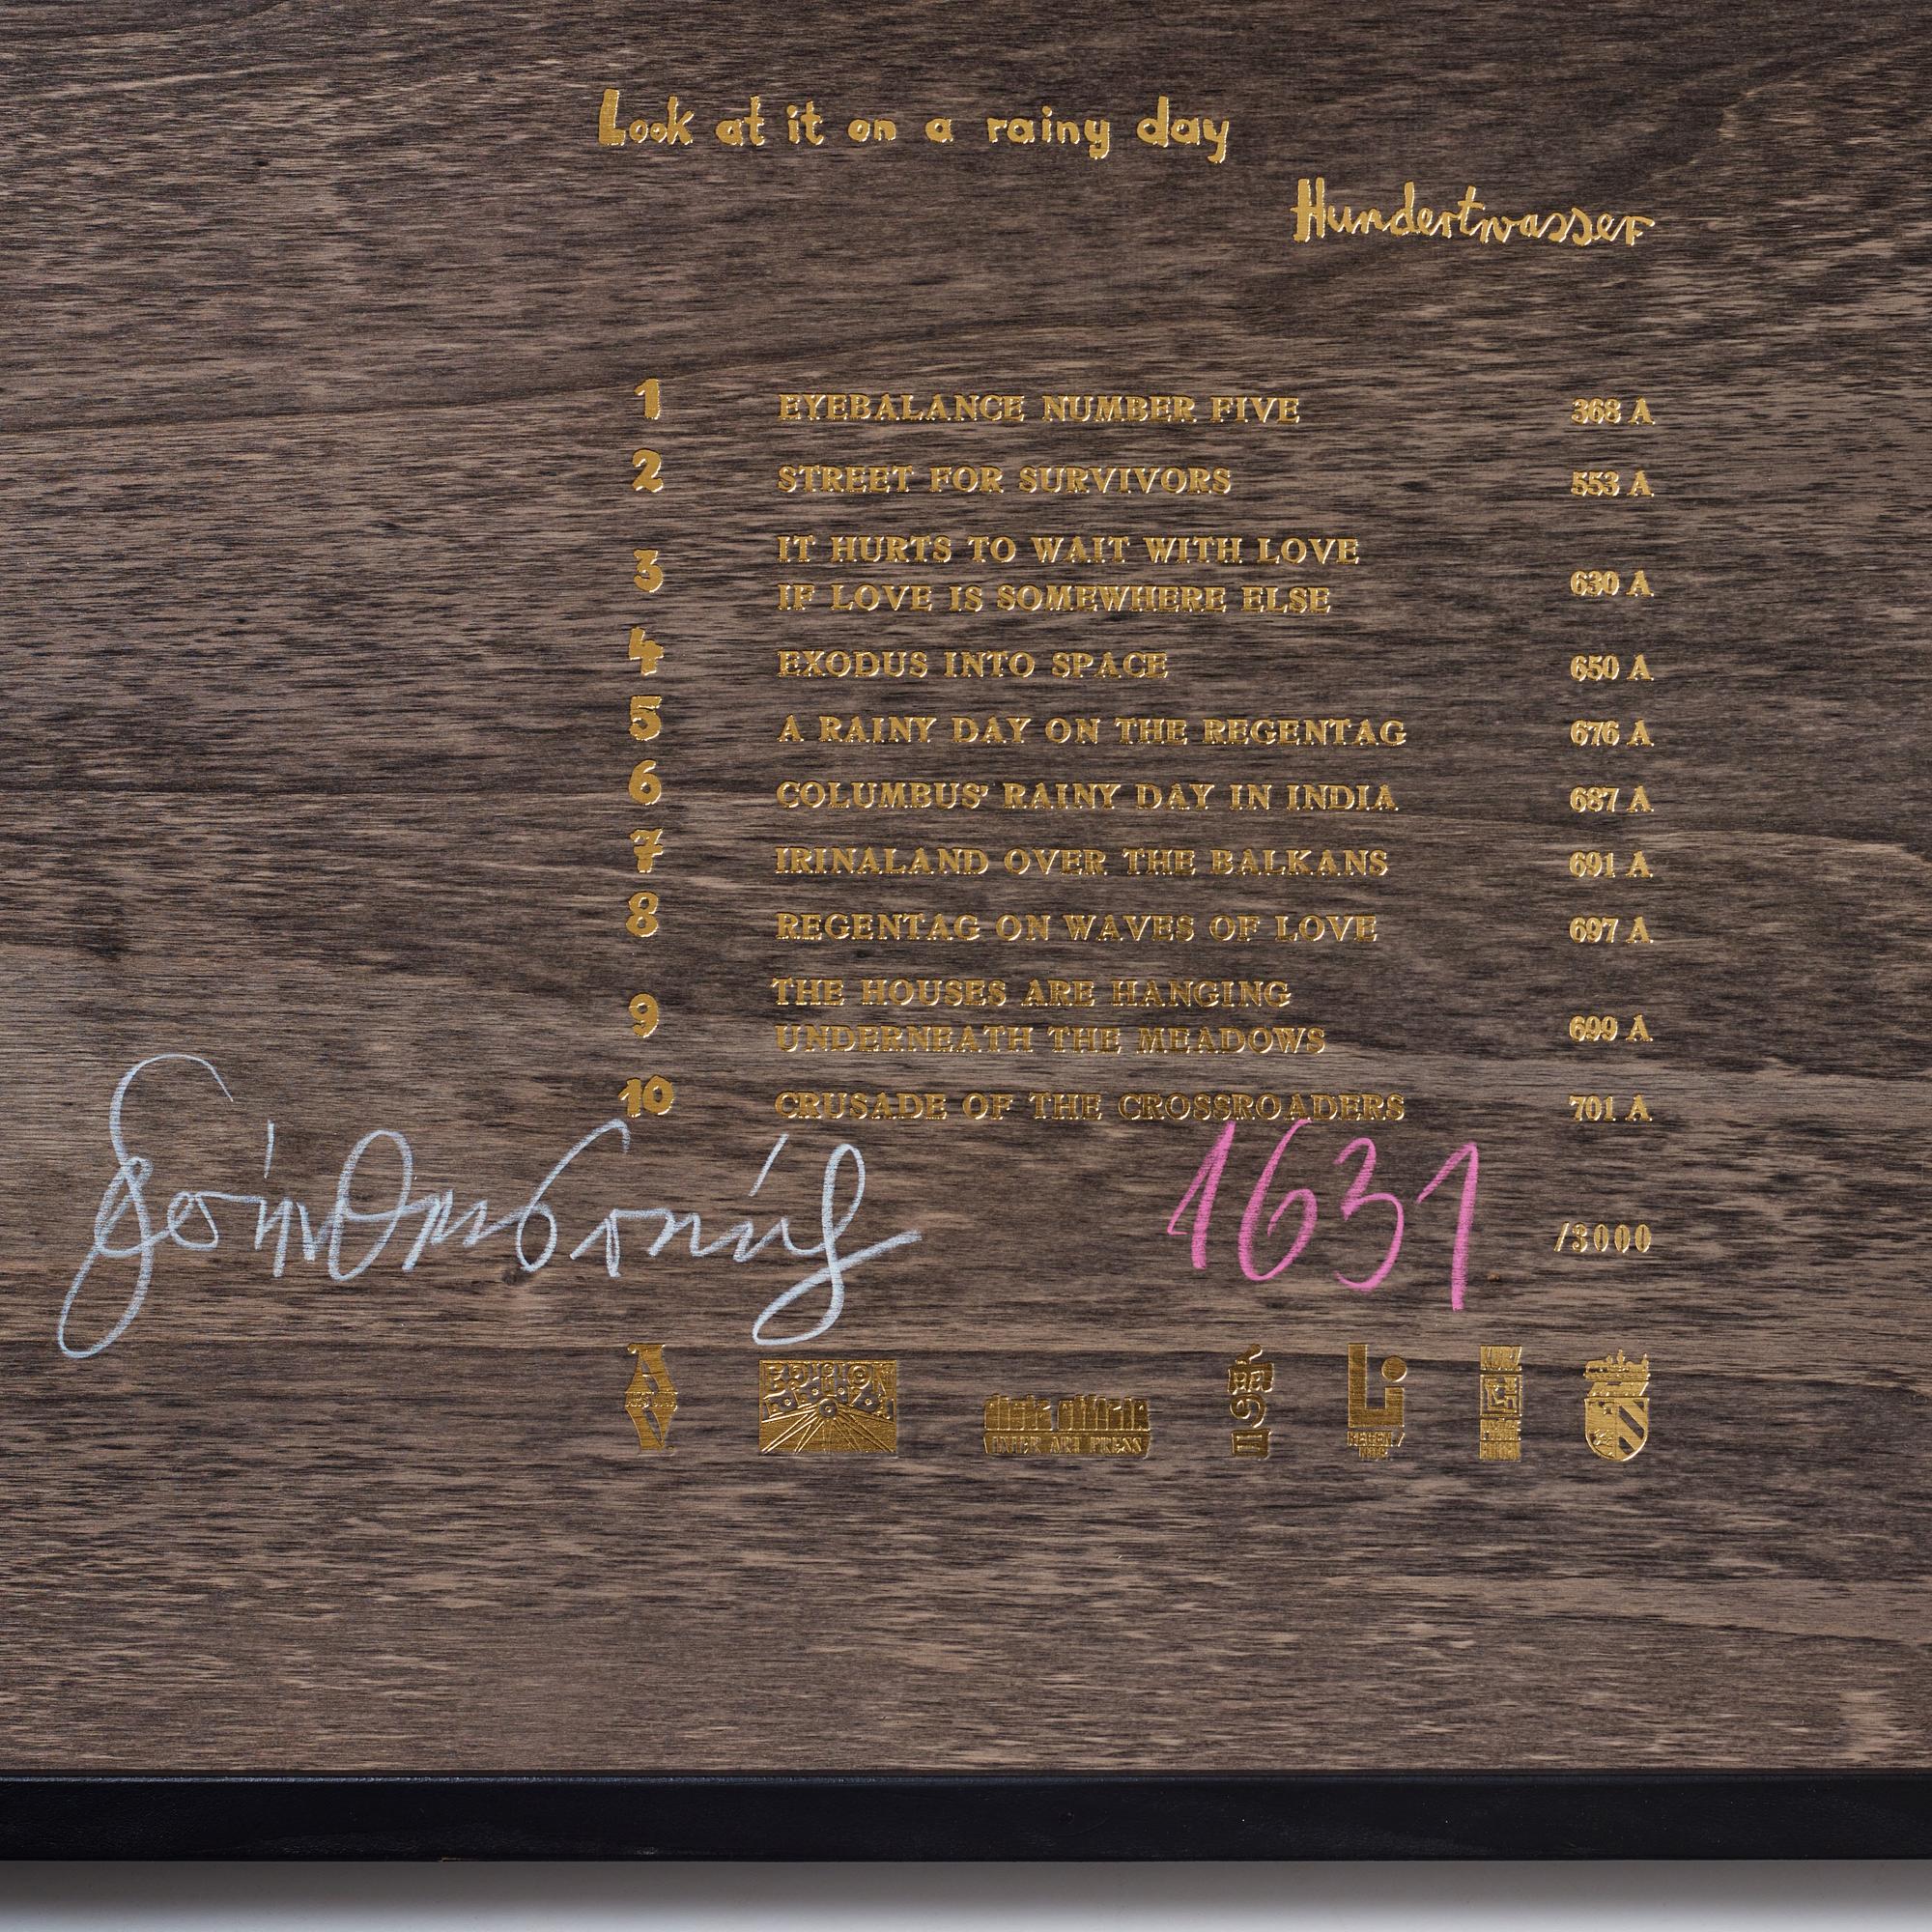 Look at it on a rainy day
Hundertwasser
1 EYEBALANCE NUMBER FIVE 368 A
2 STREET FOR SURVIVORS 553 A
3 IT HURTS TO WAIT WITH LOVE
IF LOVE IS SOMEWHERE ELSE 630 A
4 EXODUS INTO SPACE 650 A
5 A RAINY DAY ON THE REGENTAG 676 A
6 COLUMBUS' RAINY DAY IN INDIA 687 A
7 IRINALAND OVER THE BALKANS 691 A
8 REGENTAG ON WAVES OF LOVE 697 A
9 THE HOUSES ARE HANGING
UNDERNEATH THE MEADOWS 699 A
10 CRUSADE OF THE CROSSROADERS 701 A
1631 /3000
EDITION
INTER ART PRESS